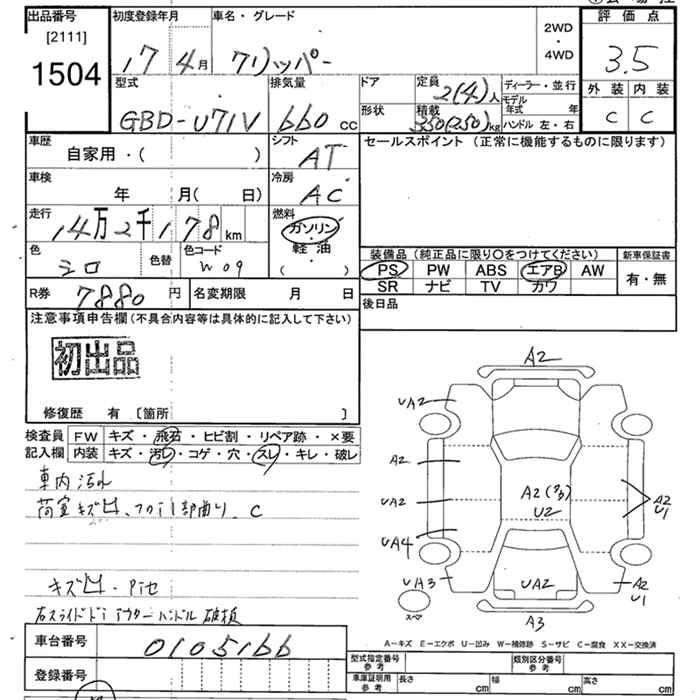 出品番号
[2111]
1504
初度登録年月
17 4月
車名・グレード
クリッパー
2WD
・
4WD
評価点
3.5
外装 内装
C C
型式
GBD-U71V
排気量
660 cc
ドア
形状
定員
2(4)人
積載
350(250)kg
ディーラー・並行
モデル
年式 年
ハンドル 左・右
車歴
自家用・( )
シフト
AT
セールスポイント (正常に機能するものに限ります)
車検
年 月( 日)
冷房
AC
走行
14万2千178 km
燃料
ガソリン
・
軽油
( )
色
シロ
色替
色コード
W09
装備品 (純正品に限り〇をつけてください)
PS PW ABS エアB AW
SR ナビ TV カワ
新車保証書
有・無
R券
7880 円
名変期限 月 日
後日品
注意事項申告欄 (不具合内容等は具体的に記入して下さい)
初出品
修復歴 有 〔箇所 〕
検査員
記入欄
FW キズ・飛石・ヒビ割・リペア跡・×要
内装 キズ・汚レ・コゲ・穴・スレ・キレ・破レ
車内汚れ
荷室キズ凹、フロア部曲り、C
キズ凹・Pセ
右スライドドアアウターハンドル破損
車台番号
0105166
登録番号
A2
UA2
A2
UA2
UA4
UA3
A2(タカ)
U2
UA2
A2
U1
A2
U1
A3
スペア
A-キズ E-エクボ U-凹み W-補修跡 S-サビ C-腐食 XX-交換済
型式指定番号
参考
類別区分番号
参考
車庫証明用
参考
長さ cm
幅 cm
高さ cm